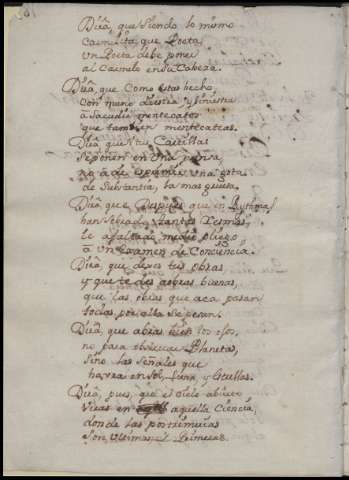 Dirà, que siendo lo mismo
Carmelita, que Poeta,
un Poeta debe poner
al Carmelo en su Cabeza.
Dirà, que como estas hecho,
con mano diestra, y siniestra
a sacudir mentecatos
que tambien mentecateas.
Dirà que si tus Cartillas
se ponen en una prensa,
no a de espremir una gota
de substancia, la mas gruesa.
Dirà que despues que en Rythma,
han sebado tantos Temas,
le a faltado medio pliego
à un examen de Conciencia.
Dirà, que dexes tus obras
y que te des a obras buenas,
que las obras que aca pasan
todas por alla se pesan.
Dirà, que abras bien los ojos,
no para observar Planetas,
sino las señales que
havrà en Sol, Luna, y estrellas.
Dirà, pues, que el Cielo abierto
Vivas en aquella Ciencia,
donde las postrimerias
son ultimas, y Primeras.